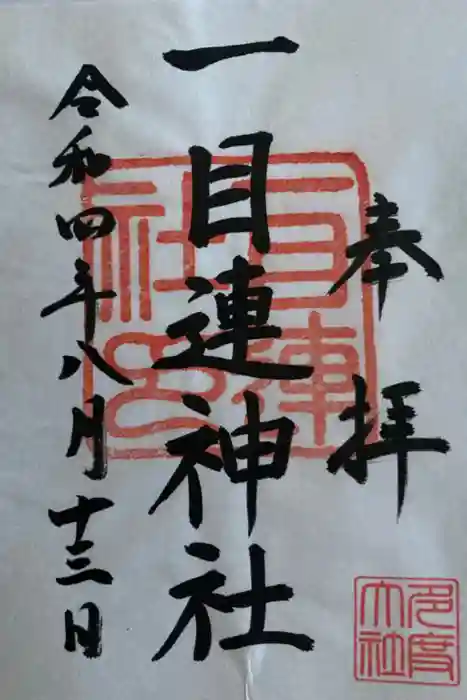 奉拝
一目連神社
令和四年八月十三日
一目連
社印
多度
大社